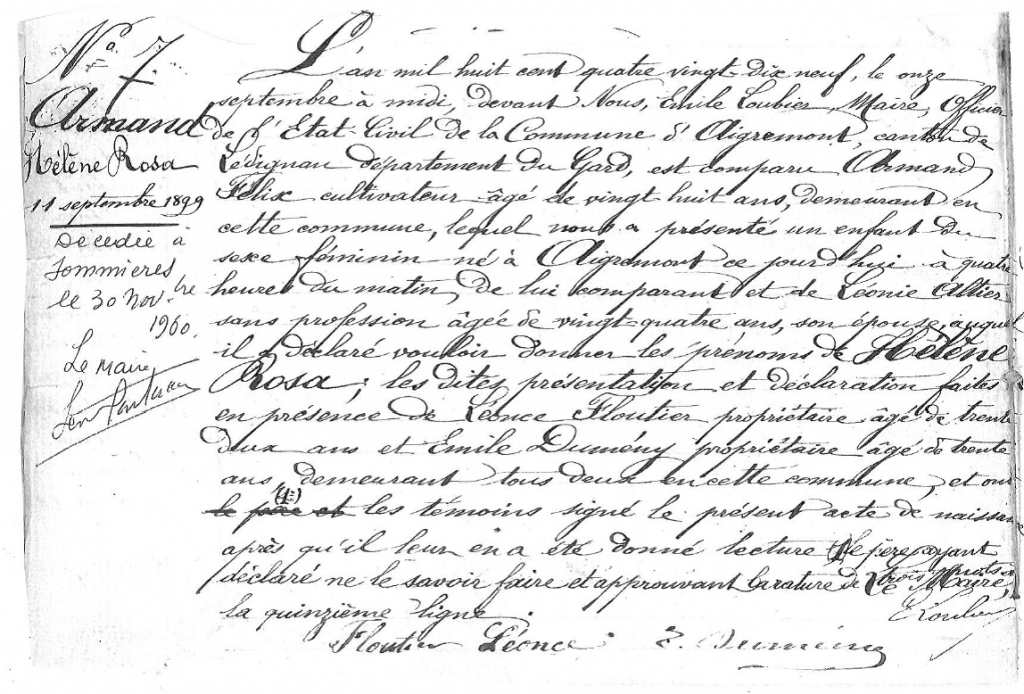 Nº 7
Armand
Hélène Rosa
11 septembre 1899
Décédée à
Sommieres
le 30 Novbre
1960.
Le Maire
L'an mil huit cent quatre vingt-dix neuf, le onze
septembre à midi, devant Nous, Emile Loubier, Maire, Officier
de l'Etat-Civil de la Commune d'Aigremont, canton de
Lédignan département du Gard, est comparu Armand
Félix cultivateur âgé de vingt huit ans, demeurant en
cette commune, lequel nous a présenté un enfant du
sexe féminin né à Aigremont ce jourd'hui à quatre
heures du matin, de lui comparant et de Léonie Altier
sans profession âgée de vingt-quatre ans, son épouse, auquel
il a déclaré vouloir donner les prénoms de Hélène
Rosa; les dites présentation et déclaration faites
en présence de Léonce Floutier propriétaire âgé de trente
deux ans et Emile Dumény propriétaire âgé de trente
ans demeurant tous deux en cette commune, et ont
(1º)
le père et les témoins signé le présent acte de naissance
après qu'il leur en a été donné lecture (1 le père ayant
déclaré ne le savoir faire et approuvant la rature de trois mots à
la quinzième ligne.
Le Maire,
E Loubier
Floutier Léonce E. Dumény